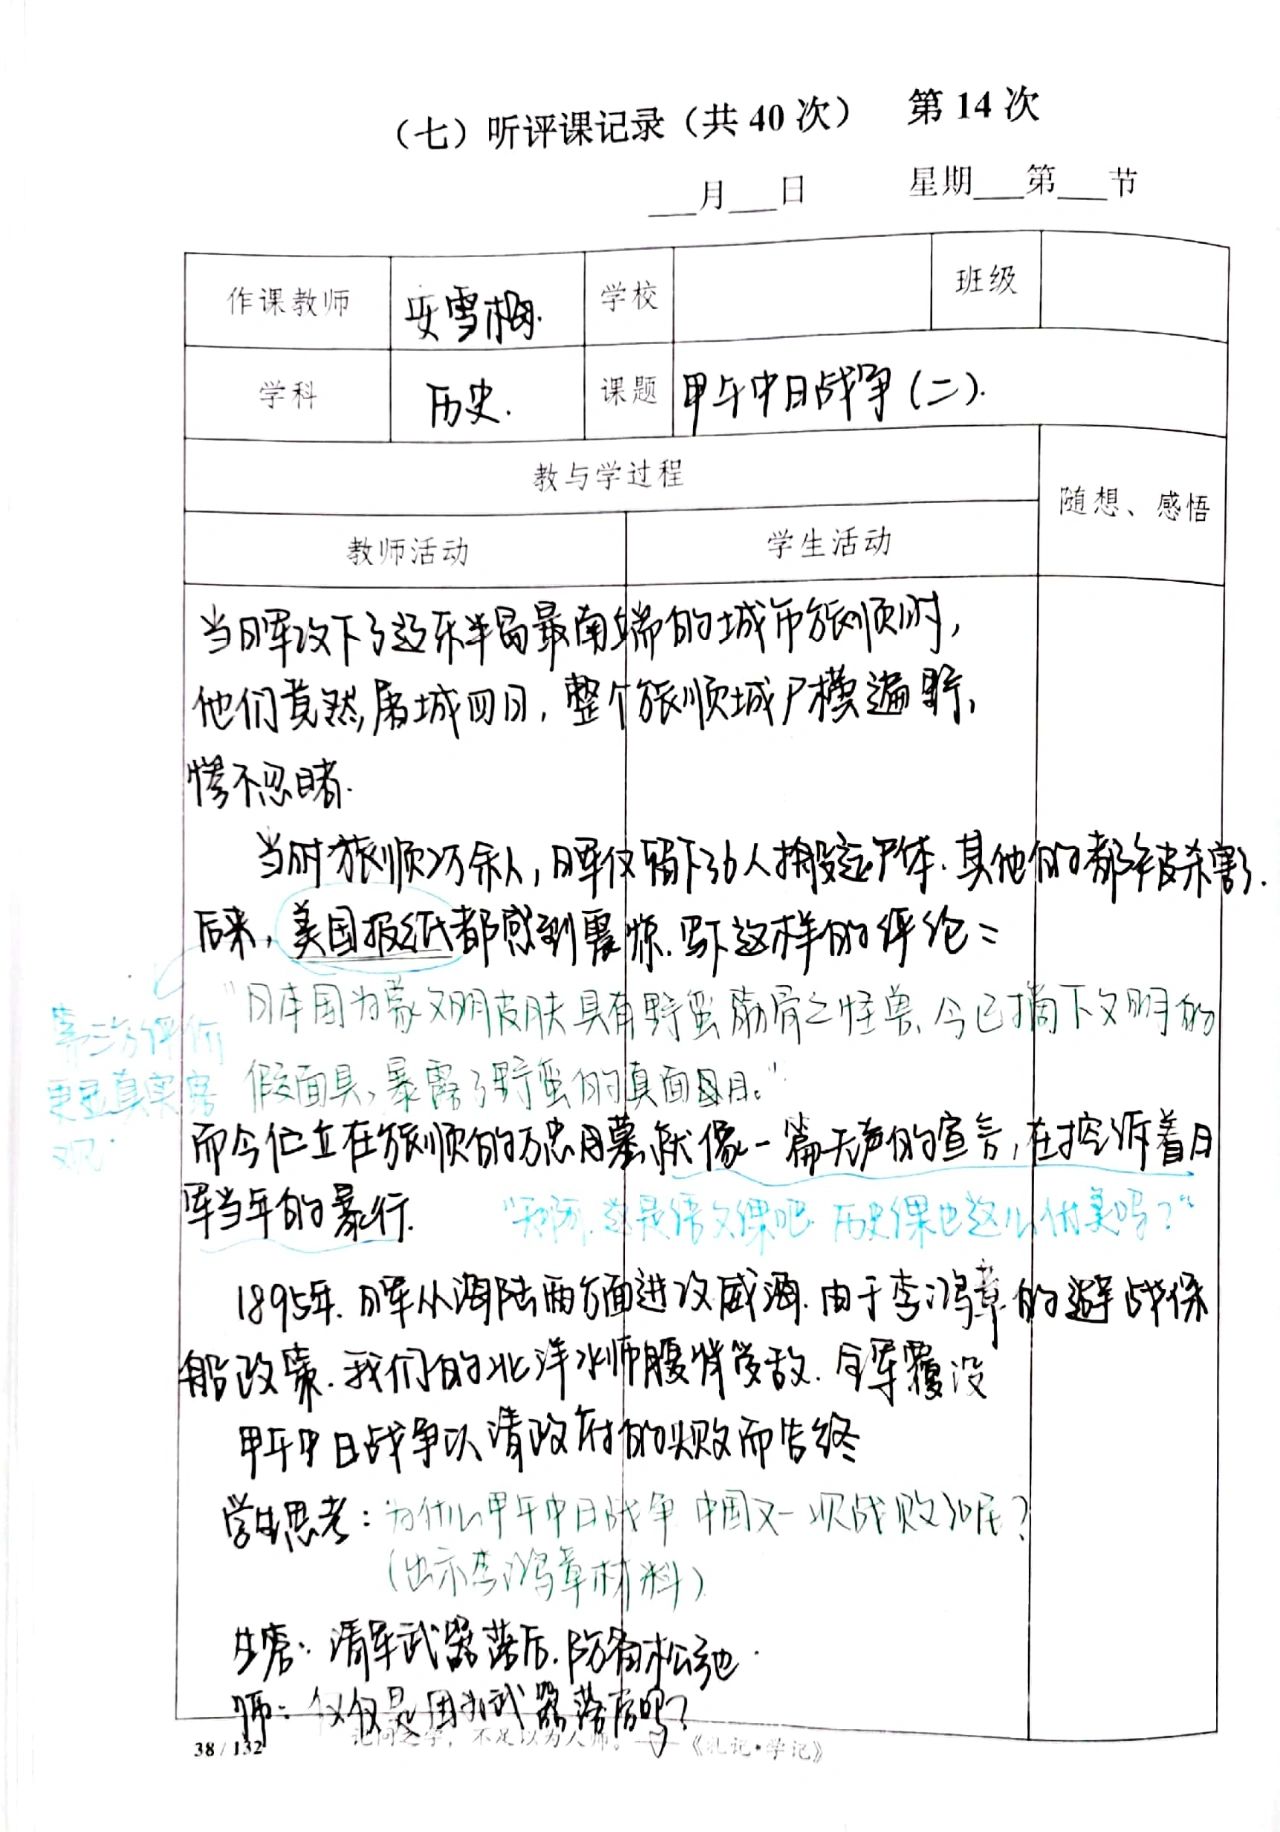 （七）听评课记录（共 40 次） 第 14 次
___月___日 星期___第___节
作课教师 安雪梅. 学校 班级
学科 历史. 课题 甲午中日战争(二).
教与学过程 随想、感悟
教师活动 学生活动
当日军攻下了辽东半岛最南端的城市旅顺时,
他们竟然屠城四日，整个旅顺城尸横遍野,
惨不忍睹.
当时旅顺2万余人，日军仅留下36人搬运尸体.其他的都被杀害了.
后来，美国报纸都感到震惊.写下这样的评论：
"日本国为蒙文明皮肤具有野蛮筋骨之怪兽.今已摘下文明的
第三方评价
假面具，暴露了野蛮的真面目。"
更显真实客
观.
而今伫立在旅顺的万忠墓.就像一篇无声的宣言，在控诉着日
军当年的暴行.
"天呐.这是语文课吧.历史课也这么优美吗？"
1895年.日军从海陆两方面进攻威海.由于李鸿章的避战保
船政策.我们的北洋水师腹背受敌.全军覆没
甲午中日战争以清政府的失败而告终
学生思考：为什么甲午中日战争中国又一次战败了呢？
(出示李鸿章材料)
生答：清军武器落后.防备松弛.
师：仅仅是因为武器落后吗？
38 / 132 记问之学，不足以为人师。——《礼记•学记》